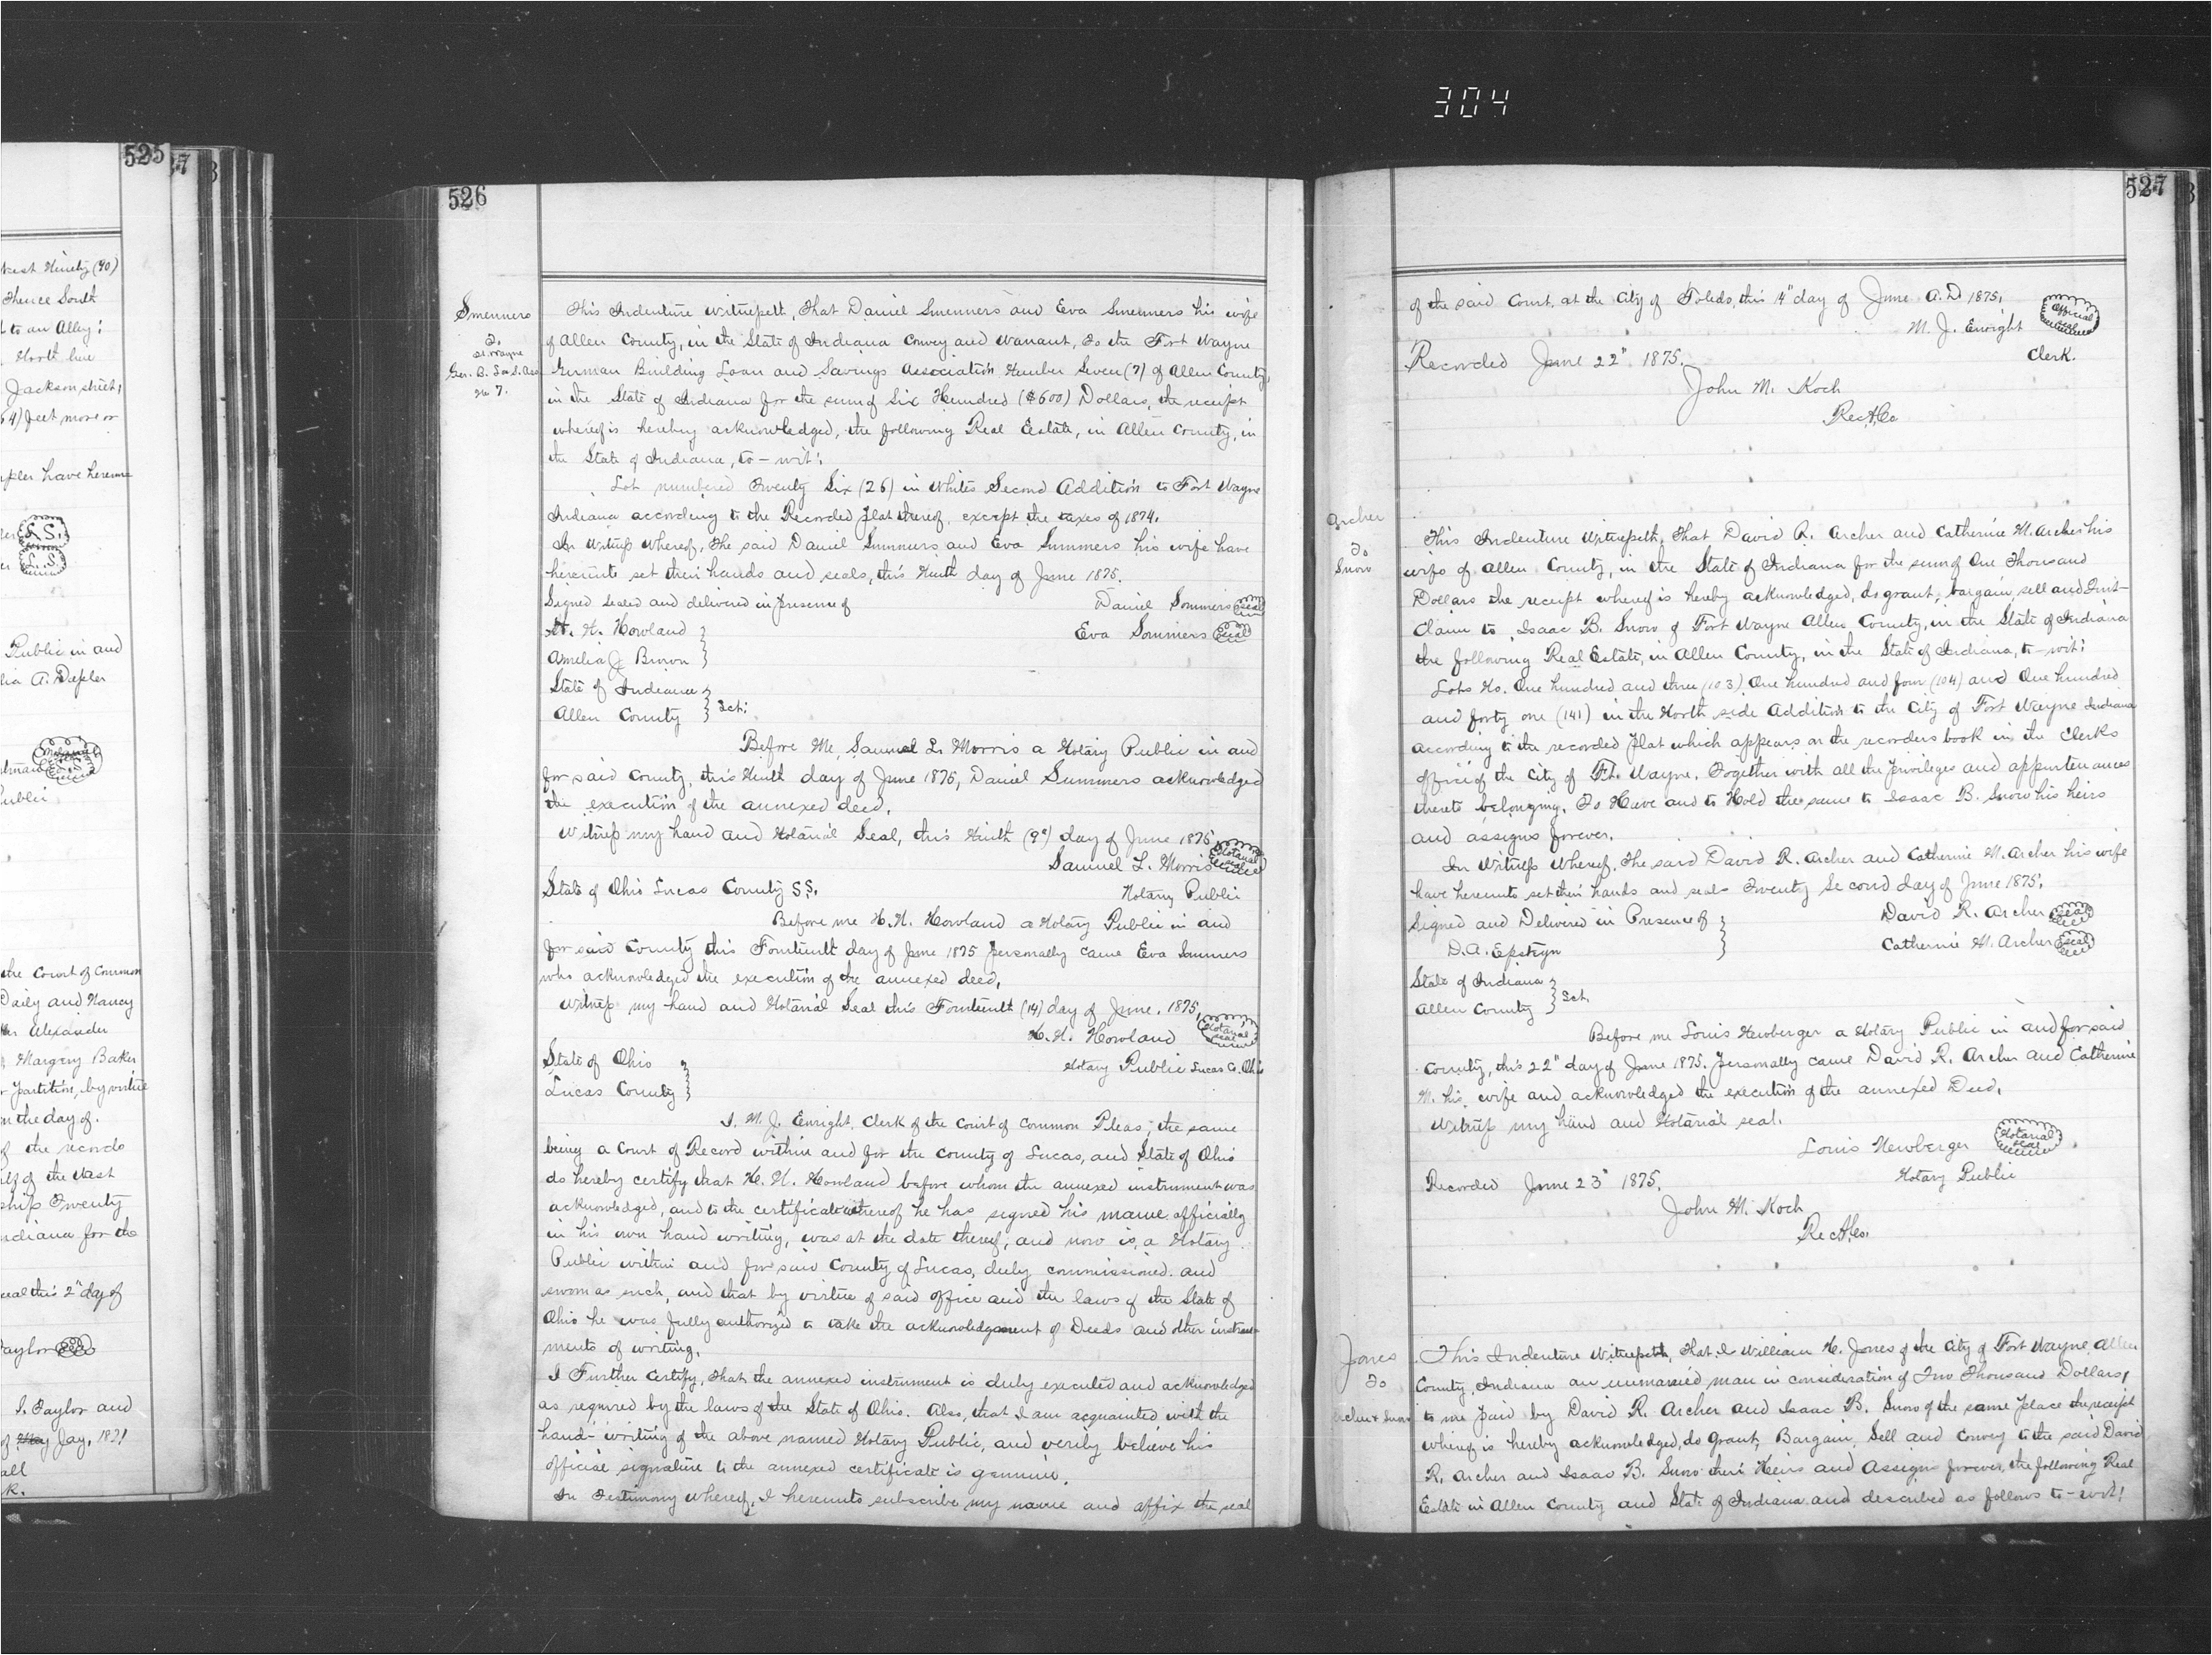 304
525
kest Ninety (90)
Thence South
t to an Alley;
North line
Jackson street,
64) feet more or
have hereun
L.S.
L.S.
Public in and
lia A. Depler
Public
the Court of Common
Daily and Nancy
Alexander
Margery Baker
r partition, by virtue
on the day of.
of the records
of the West
ship Twenty
ndiana for the
seal this 2" day of
aylor
I. Taylor and
of May Jay, 1871
all
k.
526
Smenners
To
Ft. Wayne
Ger. B. Loa. S. Ass
No 7.
This Indenture Witnesseth, That Daniel Smenners and Eva Smenners his wife
of Allen County, in the State of Indiana Convey and Warrant, To the Fort Wayne
German Building Loan and Savings Association Number Seven (7) of Allen County,
in the State of Indiana for the sum of Six Hundred ($600) Dollars, the receipt
whereof is hereby acknowledged, the following Real Estate, in Allen County, in
the State of Indiana, to-wit:
Lot numbered Twenty Six (26) in Whites Second Addition to Fort Wayne
Indiana according to the Recorded plat thereof. except the taxes of 1874.
In Witness Whereof, The said Daniel Summers and Eva Summers his wife have
hereunto set their hands and seals, this Ninth day of June 1875.
Signed sealed and delivered in presence of Daniel Sommers seal
H. H. Howland Eva Sommers Seal
Amelia J. Brown
State of Indiana
Allen County Sct:
Before Me, Samuel L. Morris a Notary Public in and
for said County, this Ninth day of June 1875, Daniel Summers acknowledged
the execution of the annexed deed.
Witness my hand and Notarial Seal, this Ninth (9") day of June 1875
Samuel L. Morris Notarial seal
State of Ohio Lucas County SS. Notary Public
Before me H. H. Howland a Notary Public in and
for said County this Fourteenth day of June 1875 personally came Eva Sommers
who acknowledged the execution of the annexed deed.
Witness my hand and Notarial Seal this Fourteenth (14) day of June. 1875,
H. H. Howland Notarial seal
State of Ohio Notary Public Lucas Co. Ohio
Lucas County
I. M. J. Enright, Clerk of the Court of Common Pleas; the same
being a Court of Record within and for the County of Lucas, and State of Ohio
do hereby certify that H. H. Howland before whom the annexed instrument was
acknowledged, and to the certificate thereof he has signed his name officially
in his own hand writing, was at the date thereof, and now is, a Notary
Public within and for said County of Lucas, duly commissioned. and
sworn as such, and that by virtue of said office and the laws of the State of
Ohio he was fully authorized to take the acknowledgement of Deeds and other instru-
ments of writing.
I Further Certify, That the annexed instrument is duly executed and acknowledged
as required by the laws of the State of Ohio. Also, that I am acquainted with the
hand-writing of the above named Notary Public, and verily believe his
official signature to the annexed certificate is genuine.
In Testimony Whereof, I hereunto subscribe my name and affix the seal
527
of the said Court, at the City of Toledo, this 14" day of June A.D 1875,
M. J. Enright Official seal
Recorded June 22" 1875. Clerk.
John M. Koch
Rec A. Co.
Archer
To
Snow
This Indenture Witnesseth, That David R. Archer and Catherine M. Archer his
wife of Allen County, in the State of Indiana for the sum of One Thousand
Dollars the receipt whereof is hereby acknowledged, do grant, bargain, sell and Quit-
Claim to Isaac B. Snow of Fort Wayne Allen County, in the State of Indiana
the following Real Estate, in Allen County, in the State of Indiana, to-wit:
Lots No. One hundred and three (103) One hundred and four (104) and One hundred
and forty one (141) in the North side Addition to the City of Fort Wayne Indiana
according to the recorded plat which appears on the recorders book in the Clerks
office of the City of Ft. Wayne. Together with all the privileges and appurtenances
thereto belonging. To Have and to Hold the same to Isaac B. Snow his heirs
and assigns forever.
In Witness Whereof, The said David R. Archer and Catherine M. Archer his wife
have hereunto set their hands and seals Twenty Second day of June 1875.
Signed and Delivered in Presence of David R. Archer seal
D. A. Epstryn Catherine M. Archer seal
State of Indiana
Allen County Sct.
Before me Louis Newberger a Notary Public in and for said
County, this 22" day of June 1875. personally came David R. Archer and Catherine
M. his, wife and acknowledged the execution of the annexed Deed.
Witness my hand and Notarial seal.
Louis Newberger Notarial seal
Recorded June 23" 1875. Notary Public
John M. Koch
Rec A. Co.
Jones
To
Archer & Snow
This Indenture Witnesseth, That I William H. Jones of the City of Fort Wayne, Allen
County, Indiana an unmarried man in consideration of Two Thousand Dollars,
to me paid by David R. Archer and Isaac B. Snow of the same place the receipt
whereof is hereby acknowledged, do Grant, Bargain, Sell and Convey to the said David
R. Archer and Isaac B. Snow their Heirs and Assigns forever, the following Real
Estate in Allen County and State of Indiana and described as follows to-wit: